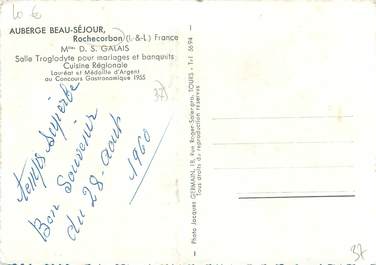 10 €
AUBERGE BEAU-SÉJOUR,
Rochecorbon (I.-&-L.) France
Mme D. S. GALAIS
Salle Troglodyte pour mariages et banquets
Cuisine Régionale
Lauréat et Médaille d'Argent
au Concours Gastronomique 1955
37
temps superbe
Bon Souvenir
du 28 - août
1960
Photo Jacques GERMAIN, 18, Rue Roger-Salengro, TOURS - Tél. 56.94
Tous droits de reproduction réservés
37